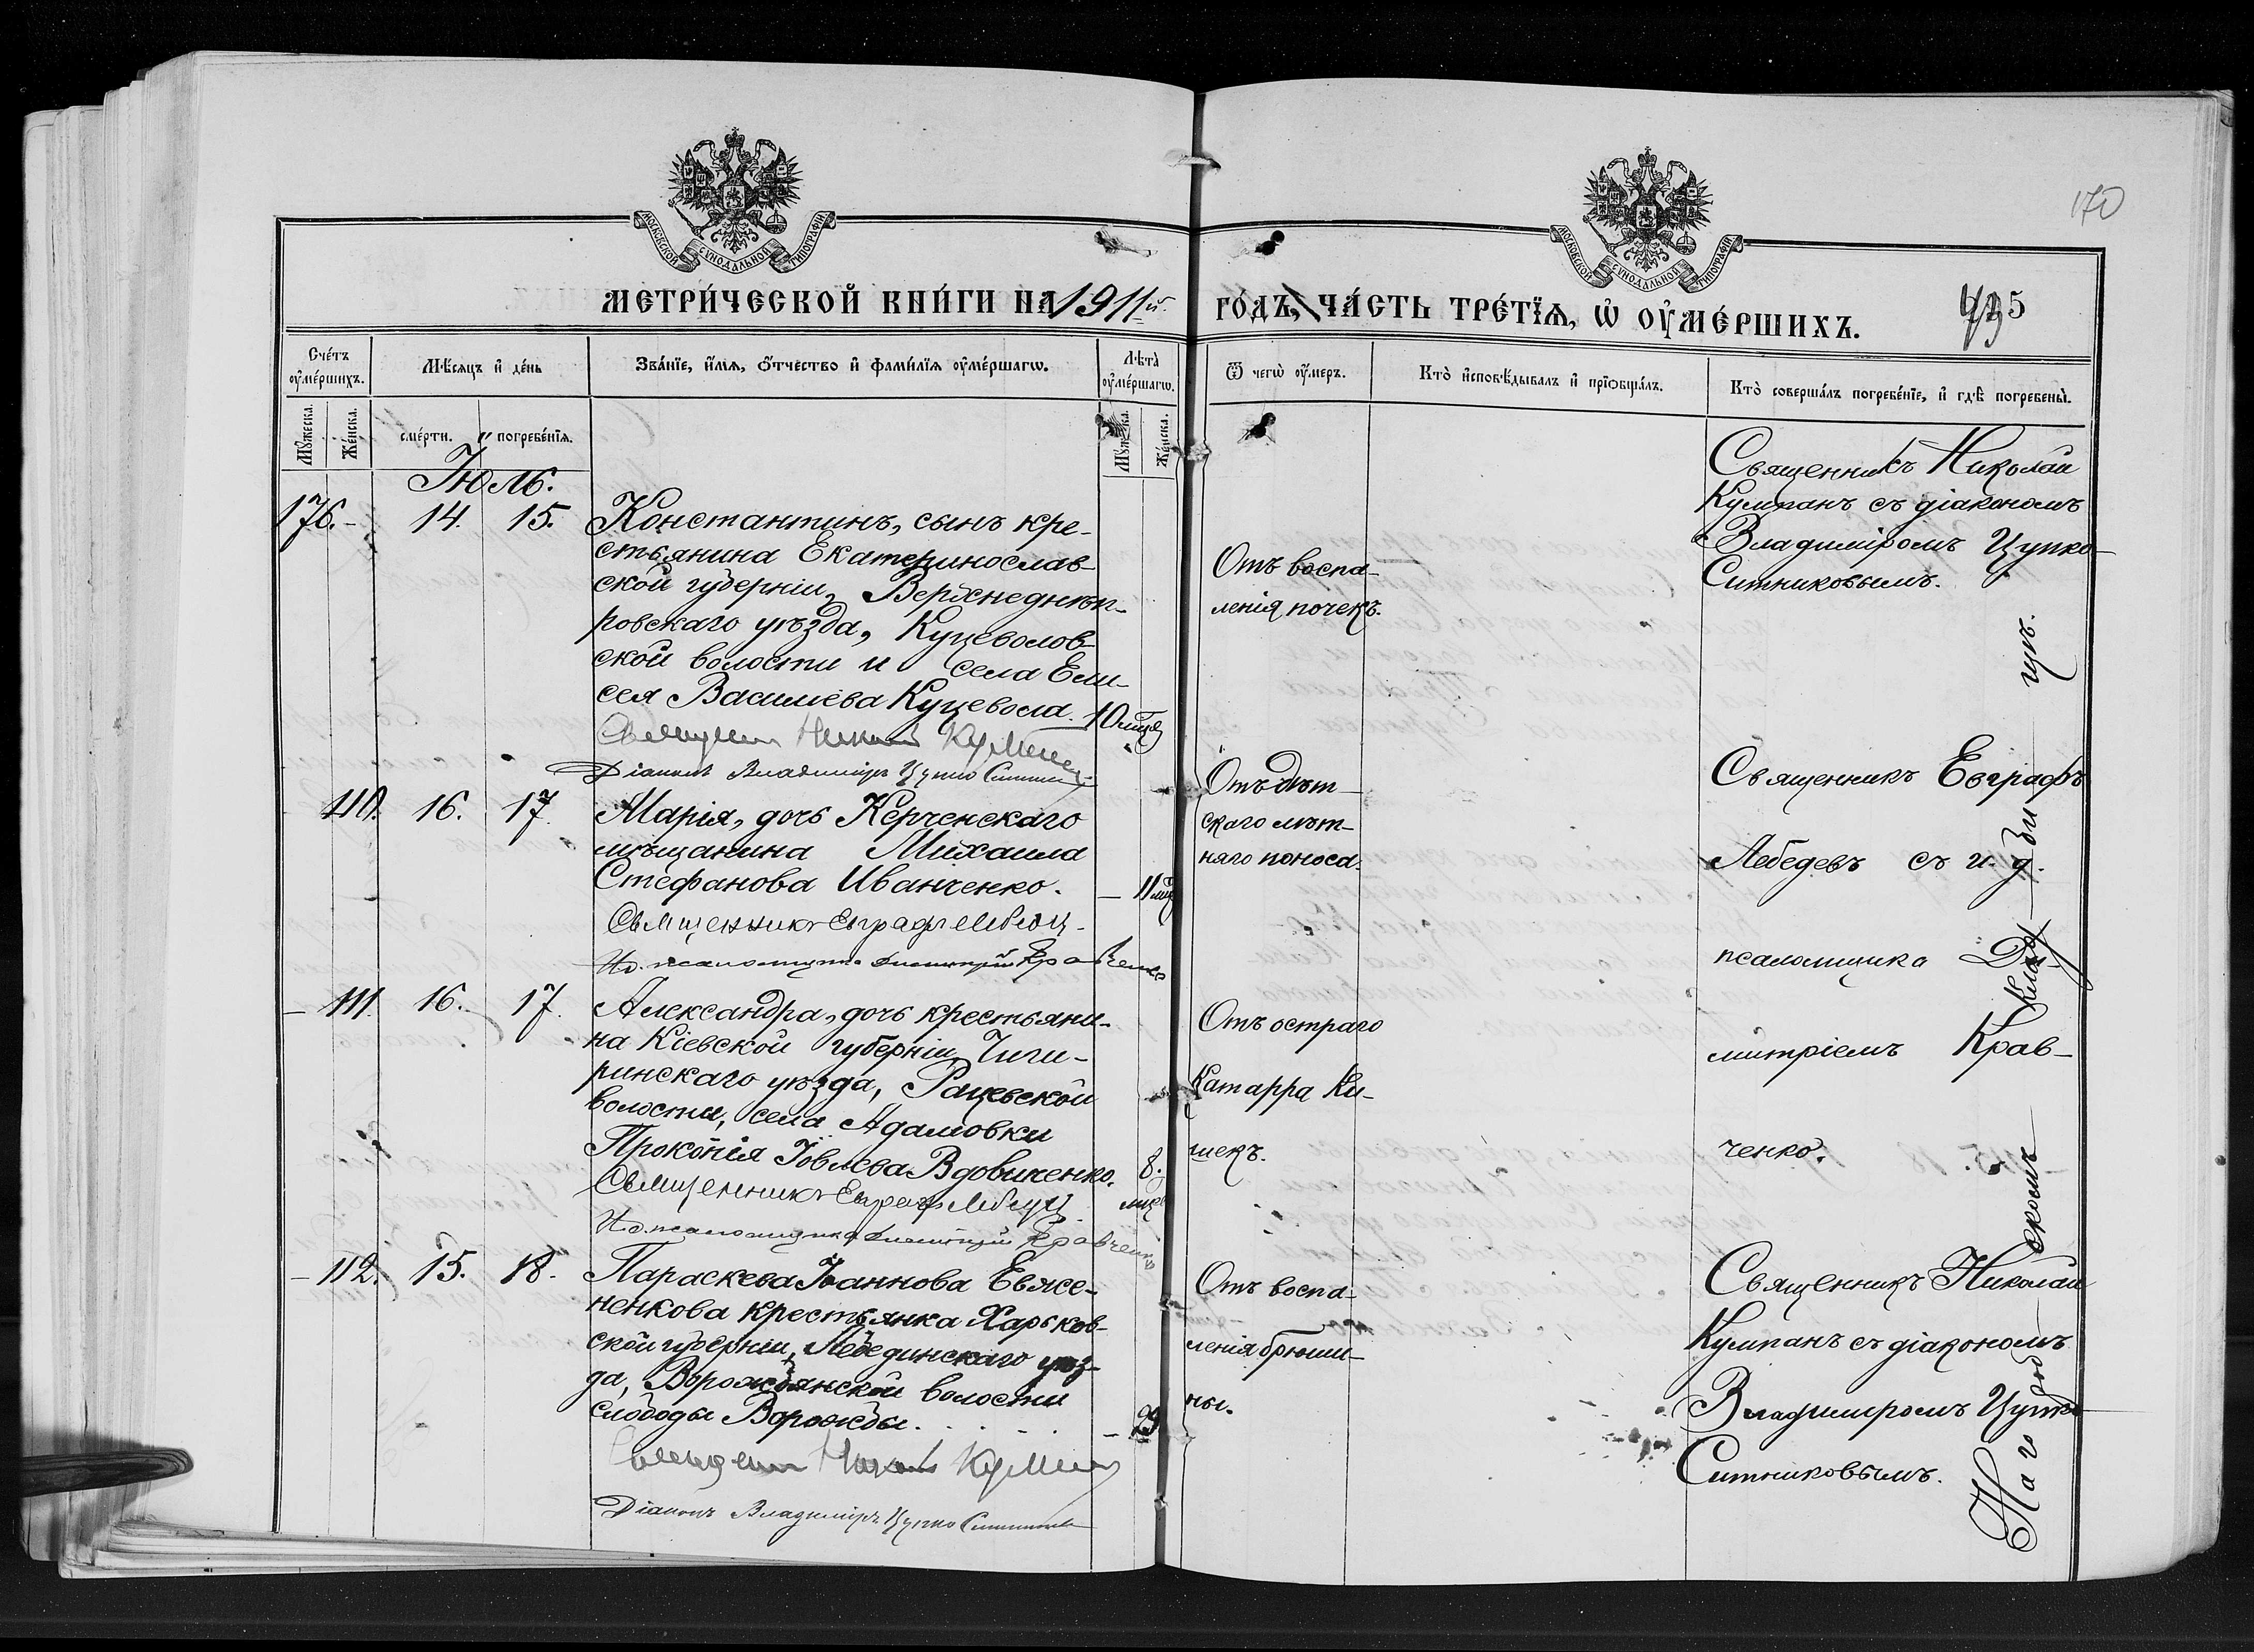 170
МОСКОВСКОЙ СѴНОДАЛЬНОЙ ТИПОГРАФІИ
МОСКОВСКОЙ СѴНОДАЛЬНОЙ ТИПОГРАФІИ
МЕТРИ́ЧЕСКОЙ КНИ́ГИ НА 1911й.
ГО́ДЪ, ЧА́СТЬ ТРЕ́ТІѦ, Ѡ҆ ОУ҆МЕ́РШИХЪ.
Сче́тъ оу҆ме́ршихъ.
Мѣ́сяцъ и҆ де́нь
Зва́нїе, и҆́мѧ, ѻ҆́тчество и҆ фамилїѧ оу҆ме́ршагѡ.
Лѣта̀ оу҆ме́ршагѡ.
Ѿ чегѡ̀ оу҆́меръ.
Кто̀ и҆сповѣ́дывалъ и҆ прїѡбща́лъ.
Кто̀ соверша́лъ погребе́нїе, и҆ гдѣ̀ погребены̀.
Мꙋ́жеска.
Же́нска.
сме́рти.
погребе́нїѧ.
Мꙋ́жеска.
Же́нска.
Іюль.
176. - 14. 15.
Константинъ, сынъ кре-
стьянина Екатеринослав-
ской губерніи, Верхнеднѣп-
ровскаго уѣзда, Куцеволов-
ской волости и села Ели-
сея Васильева Куцевола. 10 мцев
Священникъ Николай Кумпан
Діаконъ Владиміръ Цупко Ситников
Отъ воспа-
ленія почекъ.
Священникъ Николай
Кумпанъ съ діакономъ
Владиміромъ Цупко-
Ситниковымъ.
110. 16. 17.
Марія, дочь Керченскаго
мѣщанина Михаила
Стефанова Иванченко. - 11 мц
Священникъ Евграфъ Лебедев
Ид. псаломщика Димитрій Кравченко
Отъ дѣт-
скаго лѣт-
няго поноса.
Священникъ Евграфъ
Лебедевъ съ и. д.
псаломщика Ди-
митріемъ Крав-
ченко.
- 111. 16. 17.
Александра, дочь крестьяни-
на Кіевской губерніи, Чиги-
ринскаго уѣзда, Рацевской
волости, села Адамовки
Прокопія Іовлева Вдовиченко. 8. мцев
Священникъ Евграфъ Лебедев
Ид. псаломщика Димитрій Кравченко
Отъ остраго
Катарра Ки-
шекъ.
- 112. 15. 18.
Параскева Іоаннова Евже-
ненкова крестьянка Харьков-
ской губерніи, Лебединскаго уѣз-
да, Ворожбянской волости
слободы Ворожбы. - 29
Священникъ Николай Кумпан
Діаконъ Владиміръ Цупко Ситников
Отъ воспа-
ленія брюши-
ны.
Священникъ Николай
Кумпанъ съ діакономъ
Владиміромъ Цупко
Ситниковымъ.
На городскомъ кладбищѣ.